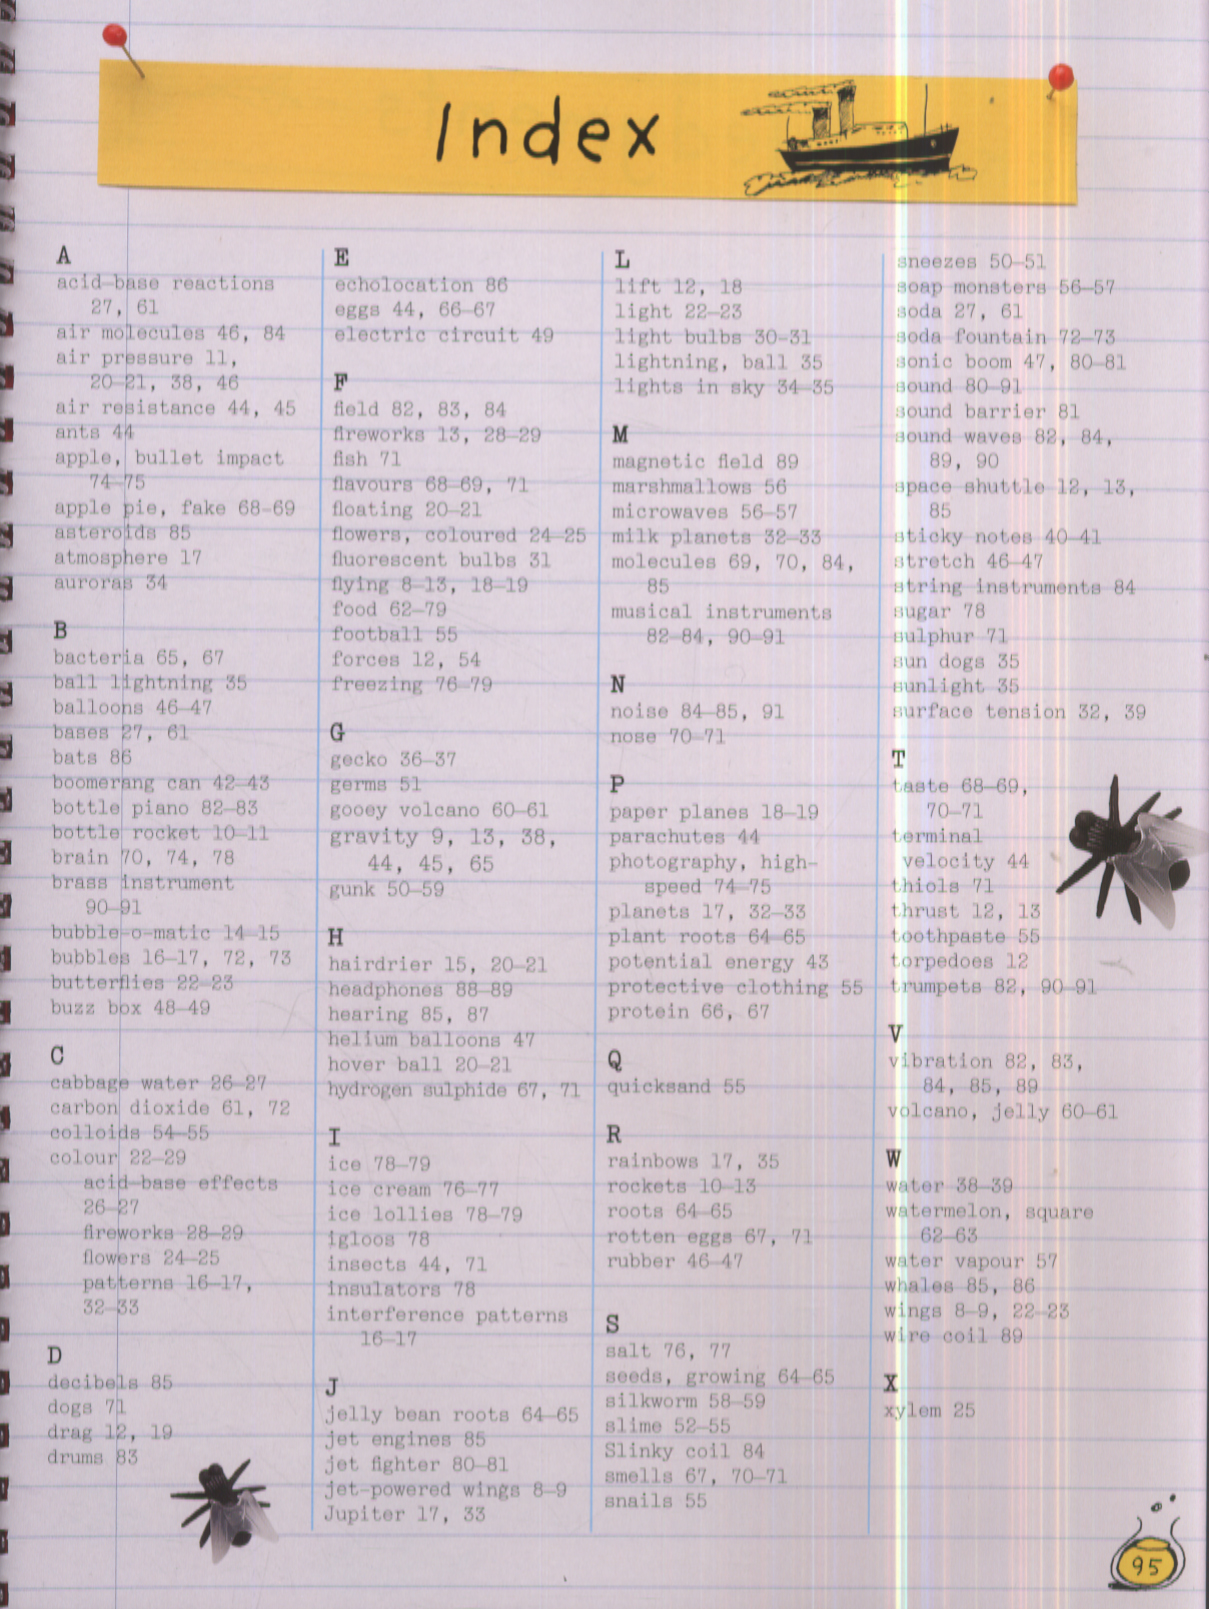 Index
A
acid-base reactions
27, 61
air molecules 46, 84
air pressure 11,
20-21, 38, 46
air resistance 44, 45
ants 44
apple, bullet impact
74-75
apple pie, fake 68-69
asteroids 85
atmosphere 17
auroras 34
B
bacteria 65, 67
ball lightning 35
balloons 46-47
bases 27, 61
bats 86
boomerang can 42-43
bottle piano 82-83
bottle rocket 10-11
brain 70, 74, 78
brass instrument
90-91
bubble-o-matic 14-15
bubbles 16-17, 72, 73
butterflies 22-23
buzz box 48-49
C
cabbage water 26-27
carbon dioxide 61, 72
colloids 54-55
colour 22-29
acid-base effects
26-27
fireworks 28-29
flowers 24-25
patterns 16-17,
32-33
D
decibels 85
dogs 71
drag 12, 19
drums 83
E
echolocation 86
eggs 44, 66-67
electric circuit 49
F
field 82, 83, 84
fireworks 13, 28-29
fish 71
flavours 68-69, 71
floating 20-21
flowers, coloured 24-25
fluorescent bulbs 31
flying 8-13, 18-19
food 62-79
football 55
forces 12, 54
freezing 76-79
G
gecko 36-37
germs 51
gooey volcano 60-61
gravity 9, 13, 38,
44, 45, 65
gunk 50-59
H
hairdrier 15, 20-21
headphones 88-89
hearing 85, 87
helium balloons 47
hover ball 20-21
hydrogen sulphide 67, 71
I
ice 78-79
ice cream 76-77
ice lollies 78-79
igloos 78
insects 44, 71
insulators 78
interference patterns
16-17
J
jelly bean roots 64-65
jet engines 85
jet fighter 80-81
jet-powered wings 8-9
Jupiter 17, 33
L
lift 12, 18
light 22-23
light bulbs 30-31
lightning, ball 35
lights in sky 34-35
M
magnetic field 89
marshmallows 56
microwaves 56-57
milk planets 32-33
molecules 69, 70, 84,
85
musical instruments
82-84, 90-91
N
noise 84-85, 91
nose 70-71
P
paper planes 18-19
parachutes 44
photography, high-
speed 74-75
planets 17, 32-33
plant roots 64-65
potential energy 43
protective clothing 55
protein 66, 67
Q
quicksand 55
R
rainbows 17, 35
rockets 10-13
roots 64-65
rotten eggs 67, 71
rubber 46-47
S
salt 76, 77
seeds, growing 64-65
silkworm 58-59
slime 52-55
Slinky coil 84
smells 67, 70-71
snails 55
sneezes 50-51
soap monsters 56-57
soda 27, 61
soda fountain 72-73
sonic boom 47, 80-81
sound 80-91
sound barrier 81
sound waves 82, 84,
89, 90
space shuttle 12, 13,
85
sticky notes 40-41
stretch 46-47
string instruments 84
sugar 78
sulphur 71
sun dogs 35
sunlight 35
surface tension 32, 39
T
taste 68-69,
70-71
terminal
velocity 44
thiols 71
thrust 12, 13
toothpaste 55
torpedoes 12
trumpets 82, 90-91
V
vibration 82, 83,
84, 85, 89
volcano, jelly 60-61
W
water 38-39
watermelon, square
62-63
water vapour 57
whales 85, 86
wings 8-9, 22-23
wire coil 89
X
xylem 25
95